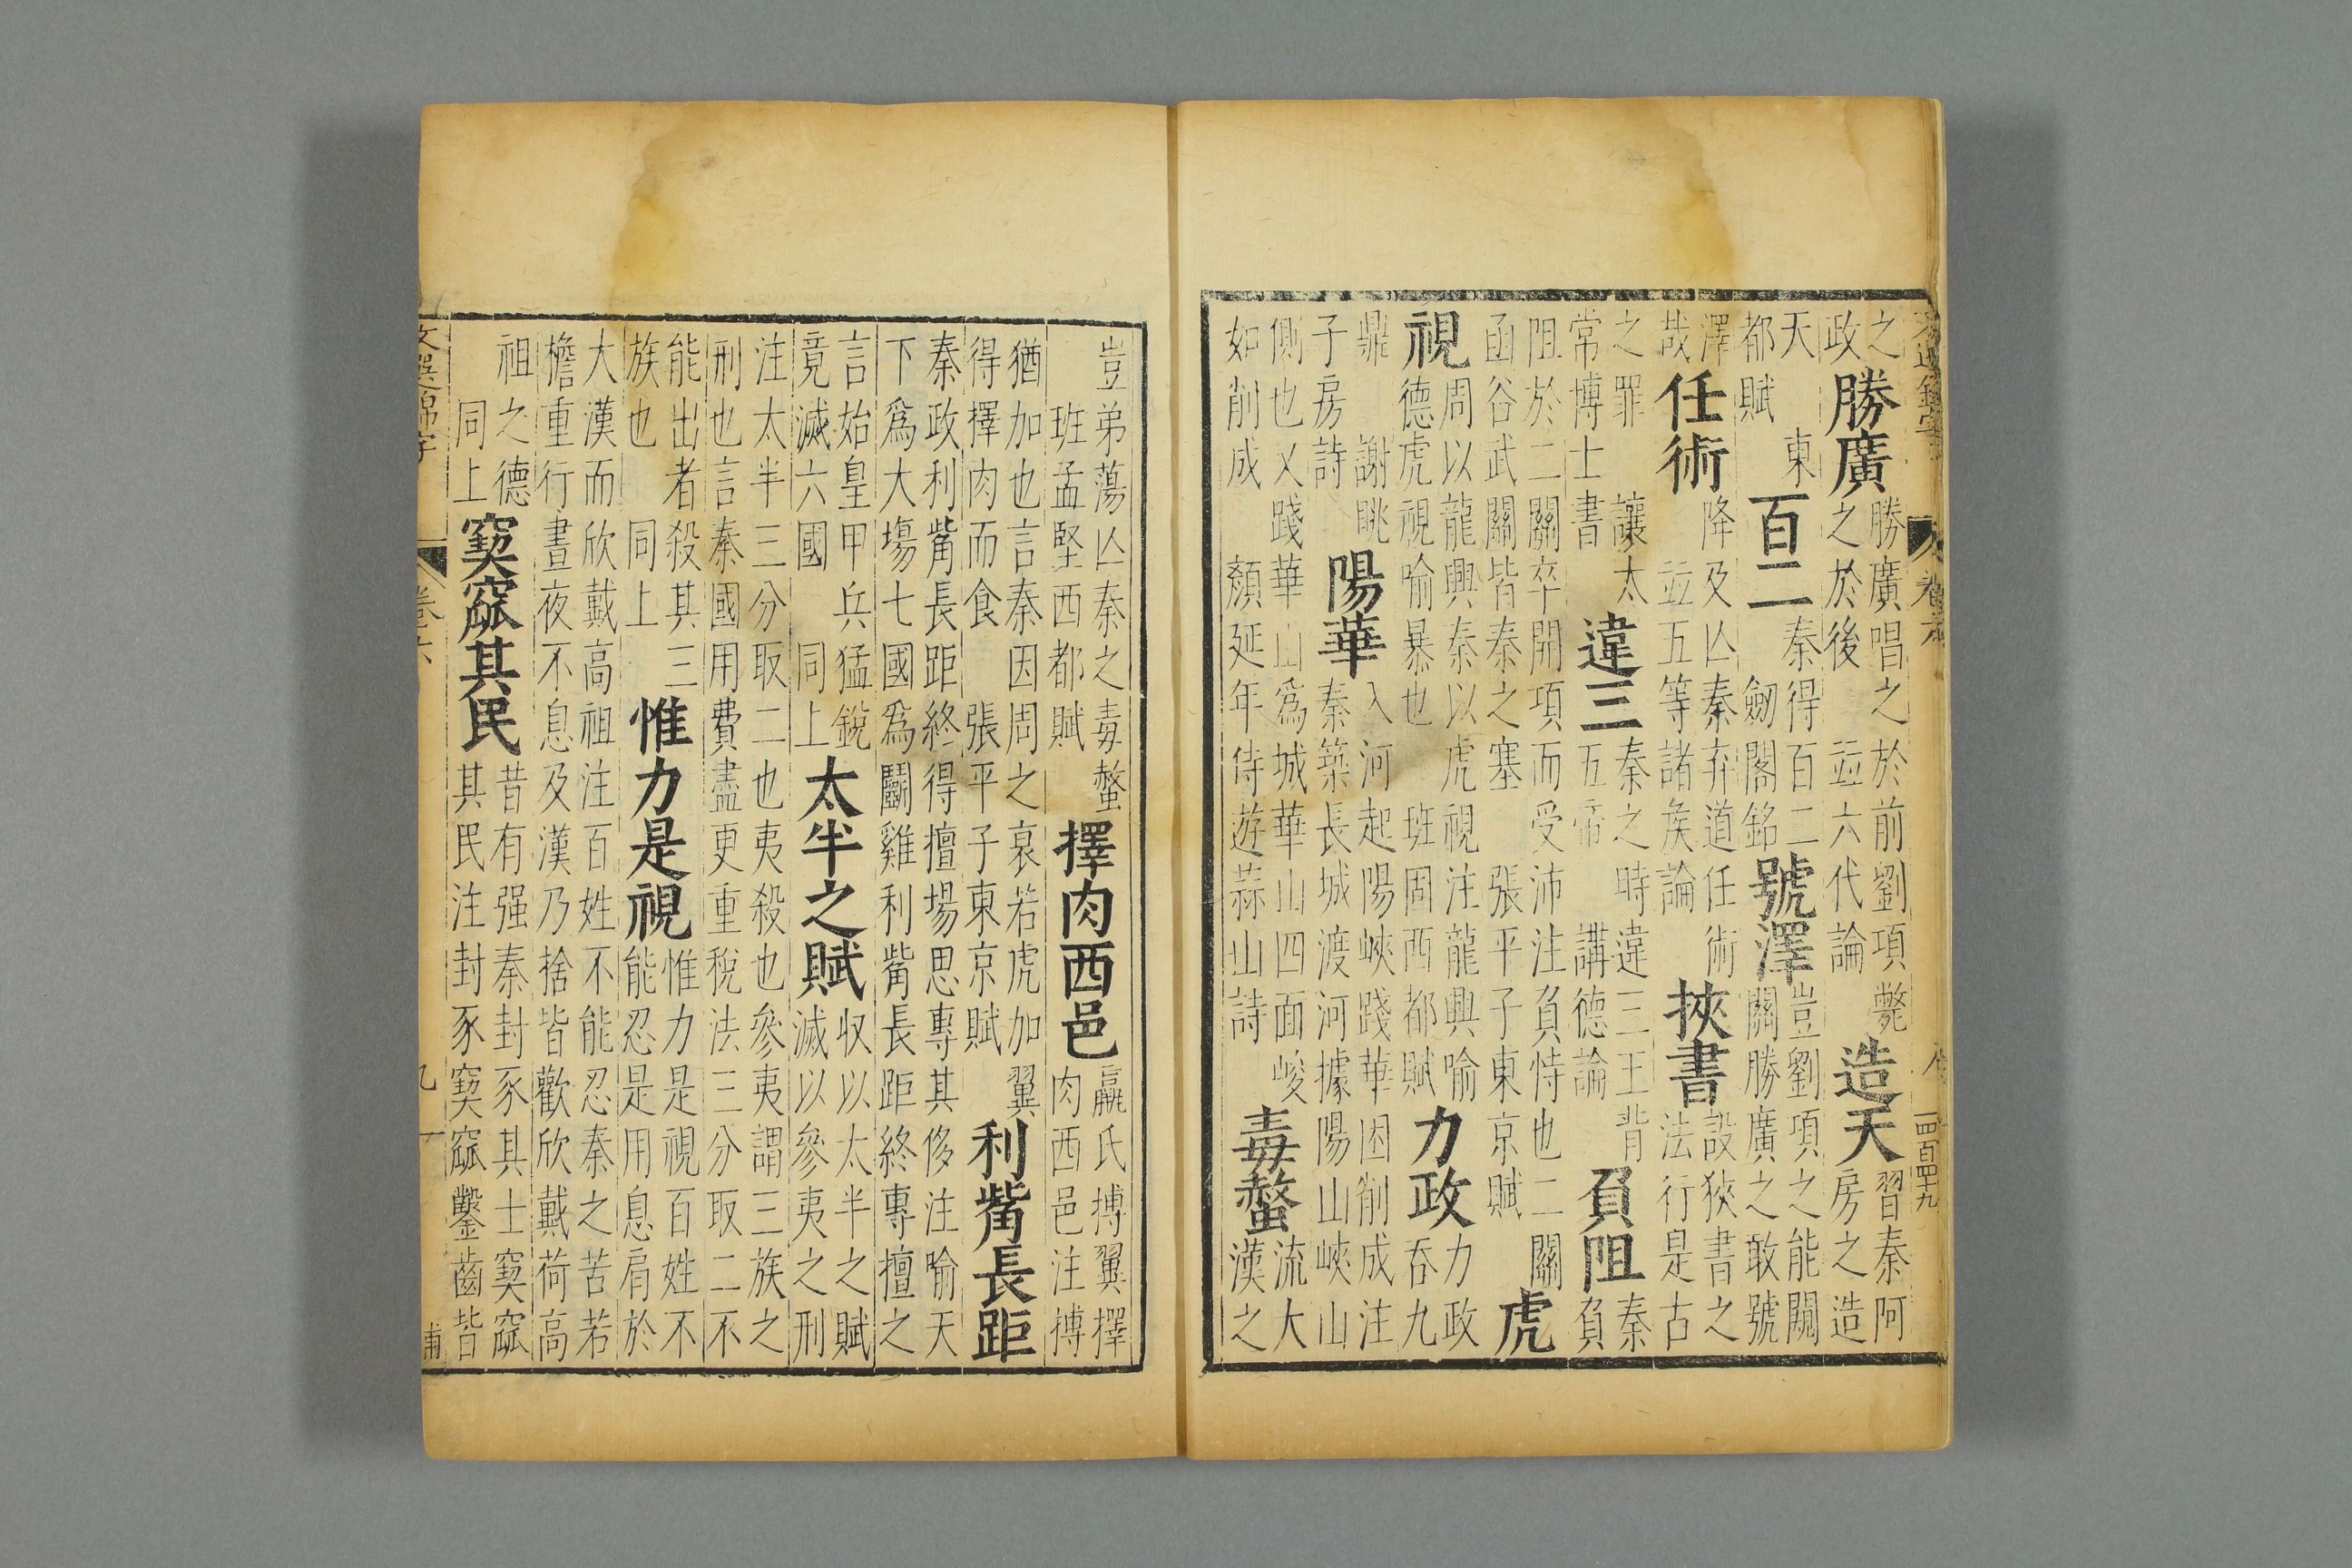 文選錦字 卷六 一四百四十九
之政勝廣勝廣唱之於前劉項斃之於後 並六代論造天習秦阿房之造
天 東都賦百二秦得百二 劒閣銘號澤豈劉項之能闚關勝廣之敢號
澤哉任術降及亾秦弃道任術 並五等諸矦論挾書設挾書之法行是古
之罪 讓太常博士書違三秦之時違三王背五帝 講德論負阻秦負
阻於二關卒開項而受沛注負恃也二關函谷武關皆秦之塞 張平子東京賦虎
視周以龍興秦以虎視注龍興喻德虎視喻暴也 班固西都賦力政力政吞九
鼎 謝眺子房詩陽華入河起陽峽踐華困削成注秦築長城渡河據陽山峽山
側也又踐華山爲城華山四面峻如削成 顏延年侍遊蒜山詩毒螫流大漢之
豈弟蕩亾秦之毒螫 班孟堅西都賦擇肉西邑嬴氏搏翼擇肉西邑注搏
猶加也言秦因周之衰若虎加翼得擇肉而食 張平子東京賦利觜長距
秦政利觜長距終得擅場思專其侈注喻天下爲大塲七國爲鬭雞利觜長距終專擅之
言始皇甲兵猛銳竟滅六國 同上太半之賦收以太半之賦滅以參夷之刑
注太半三分取二也夷殺也參夷謂三族之刑也言秦國用費盡更重稅法三分取二不
能出者殺其三族也 同上惟力是視惟力是視百姓不能忍是用息肩於
大漢而欣戴高祖注百姓不能忍秦之苦若檐重行晝夜不息及漢乃捨皆歡欣戴荷高
祖之德 同上窫窳其民昔有强秦封豕其士窫窳其民注封豕窫窳鑿齒皆
文選錦字 卷六 九